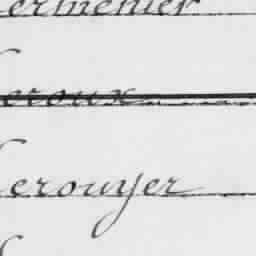 ermenier
eroux
erouyer